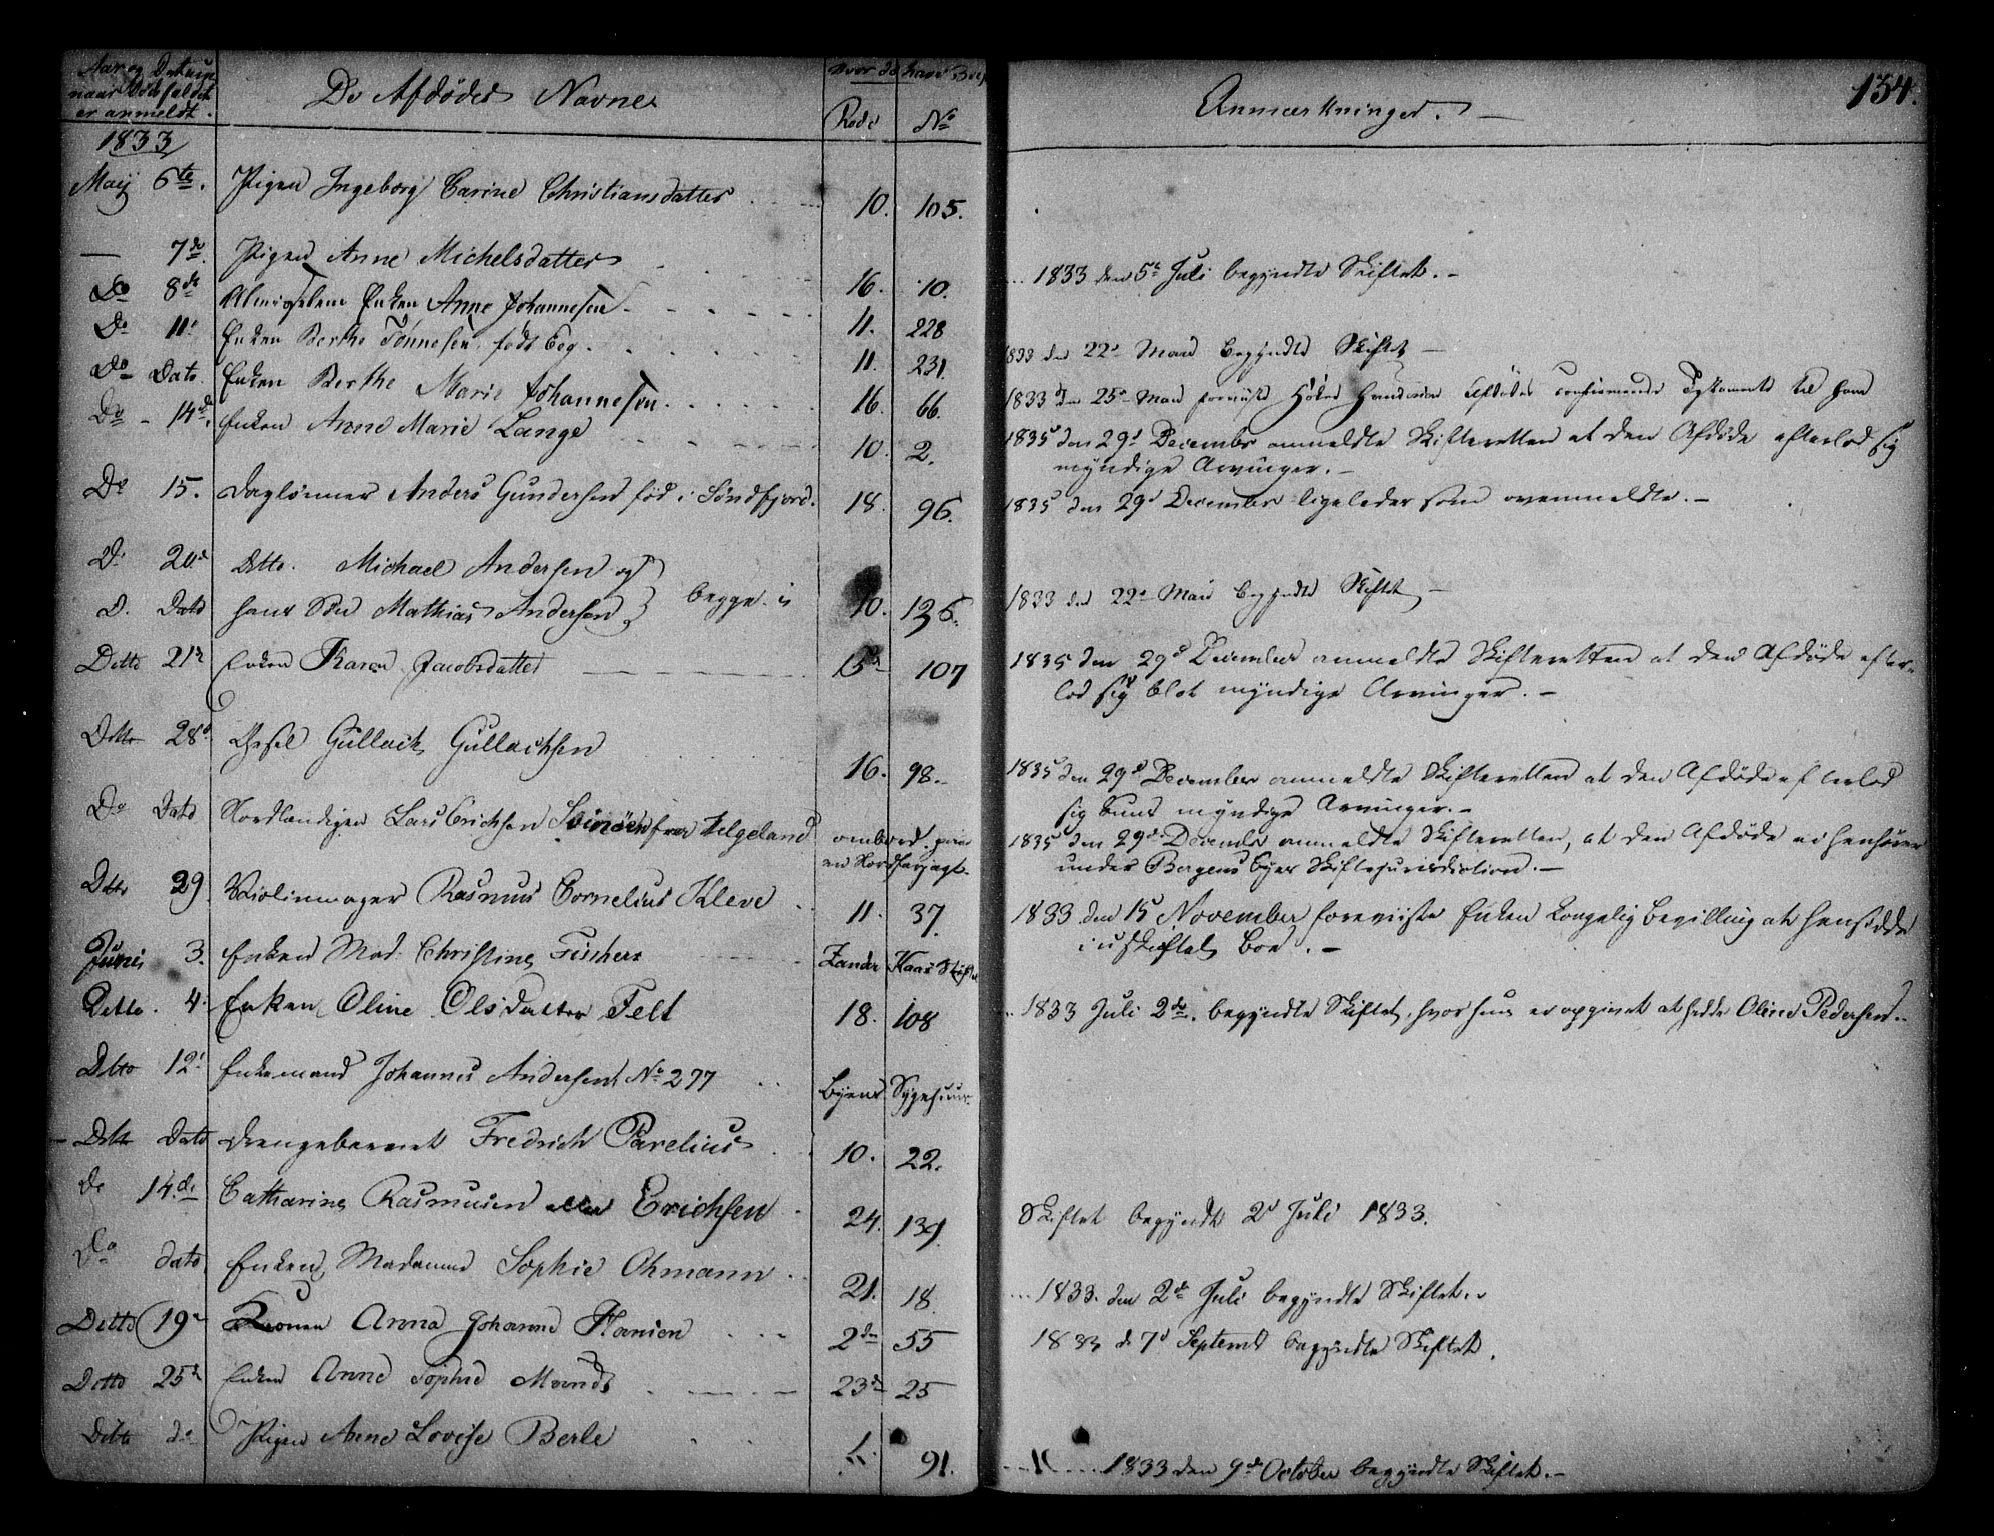 Aar og Datum naar Dödsfaldet er anmeldt. De Afdødes Navne hvor de have Boe Rode No Anmærkninger. 134.
1833
May 6te. Pigen Ingeborg Carine Christiansdatter 10. 105.
— 7de. Pigen Anne Michelsdatter 16. 10. 1833 den 5t Juli begyndte Skiftet.
Do 8de Enken Anne Johannesen 11. 228
Do 11t Enken Berthe Tønnesen, født Beg. 11. 231. 1833 den 22d Maii begyndte Skiftet
Do Dato. Enken Berthe Marie Johannesen 16. 66. 1833 den 25d Maii til ham
Do - 14de. Enken Anne Marie Lange 10. 2. 1835 den 29d December anmeldte Skifteretten at den Afdøde efterlod sig
myndige Arvinger.
Do 15. Daglønner Anders Gundersen fød i Søndfjord. 18. 96. 1835 den 29d December ligeledes som ovenmeldte.
D. 20d Ditto. Michael Andersen og
D. Dato hans Søn Mathias Andersen, begge i 10. 136. 1833 den 22d Maii begyndte Skiftet
Ditto 21de Enken Karen Jacobsdatter 15de 107 1835 den 29d December anmeldte Skifteretten at den Afdøde efter-
lod sig blot myndige Arvinger.
Ditto 28d Gullach Gullachsen 16. 98. 1835 den 29d December anmeldte Skifteretten at den Afdøde efterlod
sig kuns myndige Arvinger.
Do Dato Nordlændigen Lars Erichsen fra Helgeland ombord paa en Nordfarjagt. 1835 den 29de December anmeldte Skifteretten, at den Afdøde ei henhører
under Bergens Byes Skiftejurisdiction.
Ditto 29. Violinmager Rasmus Cornelius Kleve 11. 37. 1833 den 15 November foreviiste Enken Kongelig Bevilling at hensidde
i uskiftet Boe.
Juni 3. Enken Mad: Christine Fischer Zander Kaas Stiftel
Ditto. 4. Enken Oline Olsdatter Felt 18. 108 1833 Juli 2de. begyndte Skiftet, hvor hun er opgivet at hedde Oline Pedersen.
Ditto 12t Enkemand Johannes Andersen No 277 Byens Sygehuus.
Ditto Dato Drengebarnet Fredrich Parelius 10. 22.
Do 14.de Catharine Rasmusen eller Erichsen 24. 139. Skiftet begyndt 2d Juli 1833.
Do dato Enken, Madame Sophie Ohmann 21. 18. 1833. den 2de Juli begyndte Skiftet.
Ditto 19de Konen Anna Johanne Hansen 2den 55 1833 d 7d Septembr begyndte Skiftet.
Ditto 25de Enken Anne Sophie 23de 25
Ditto do Pigen Anne Lovise Berle 1. 91. 1833 den 9de October begyndte Skiftet.